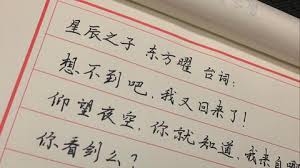 星辰之子 东方曜 台词:
想不到吧,我又回来了!
仰望夜空,你就知道,我来自哪
你看到么?